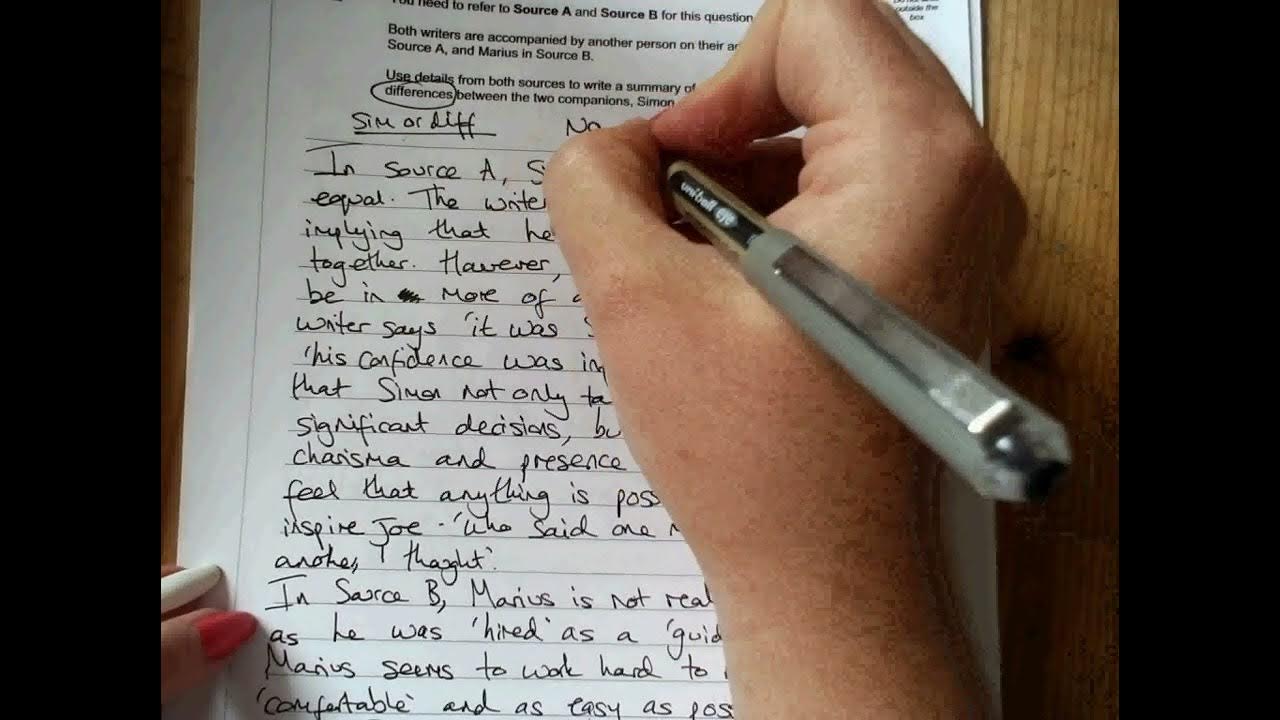 You need to refer to Source A and Source B for this question
outside the
box
Both writers are accompanied by another person on their
Source A, and Marius in Source B.
Use details from both sources to write a summary of
differences between the two companions, Simon
Sim or diff
In Source A,
equal. The
implying that he
together. However,
be in more of
writer says 'it was
'his confidence was
that Simon not only
significant decisions,
charisma and presence
feel that anything is
inspire Joe - 'who said one
I thought'.
In Source B, Marius is not
as he was 'hired' as a
Marius seems to work hard to
'comfortable' and as easy as
uniball eye